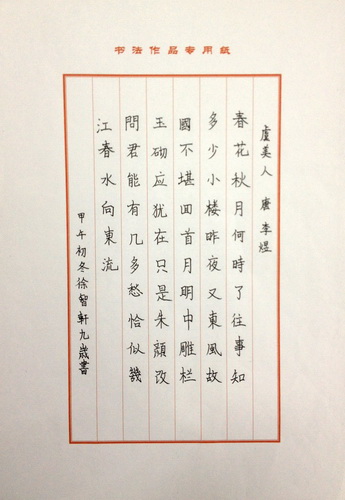 书法作品专用纸
虞美人 唐 李煜
春花秋月何時了往事知
多少小楼昨夜又東風故
國不堪囬首月明中雕栏
玉砌应犹在只是朱顔改
問君能有几多愁恰似幾
江春水向東流
甲午初冬徐智軒九歲書